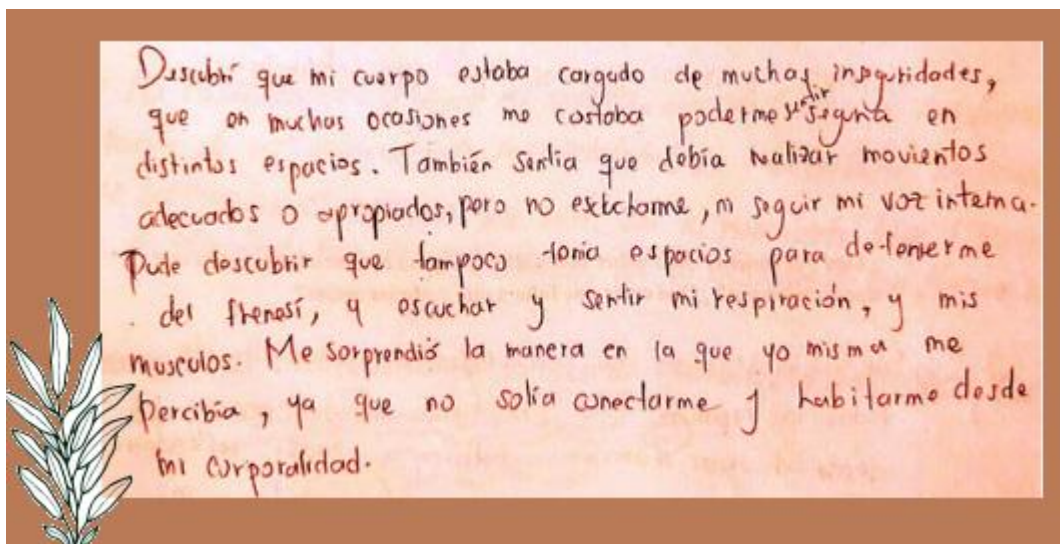 Descubrí que mi cuerpo estaba cargado de muchas inseguridades,
que en muchas ocasiones me costaba poderme sentir segura en
distintos espacios. También sentia que debía realizar movientos
adecuados o apropiados, pero no escucharme, ni seguir mi voz interna.
Pude descubrir que tampoco tenia espacios para detenerme
del frenesí, y escuchar y sentir mi respiración, y mis
musculos. Me sorprendió la manera en la que yo misma me
percibía, ya que no solía conectarme y habitarme desde
mi corporalidad.